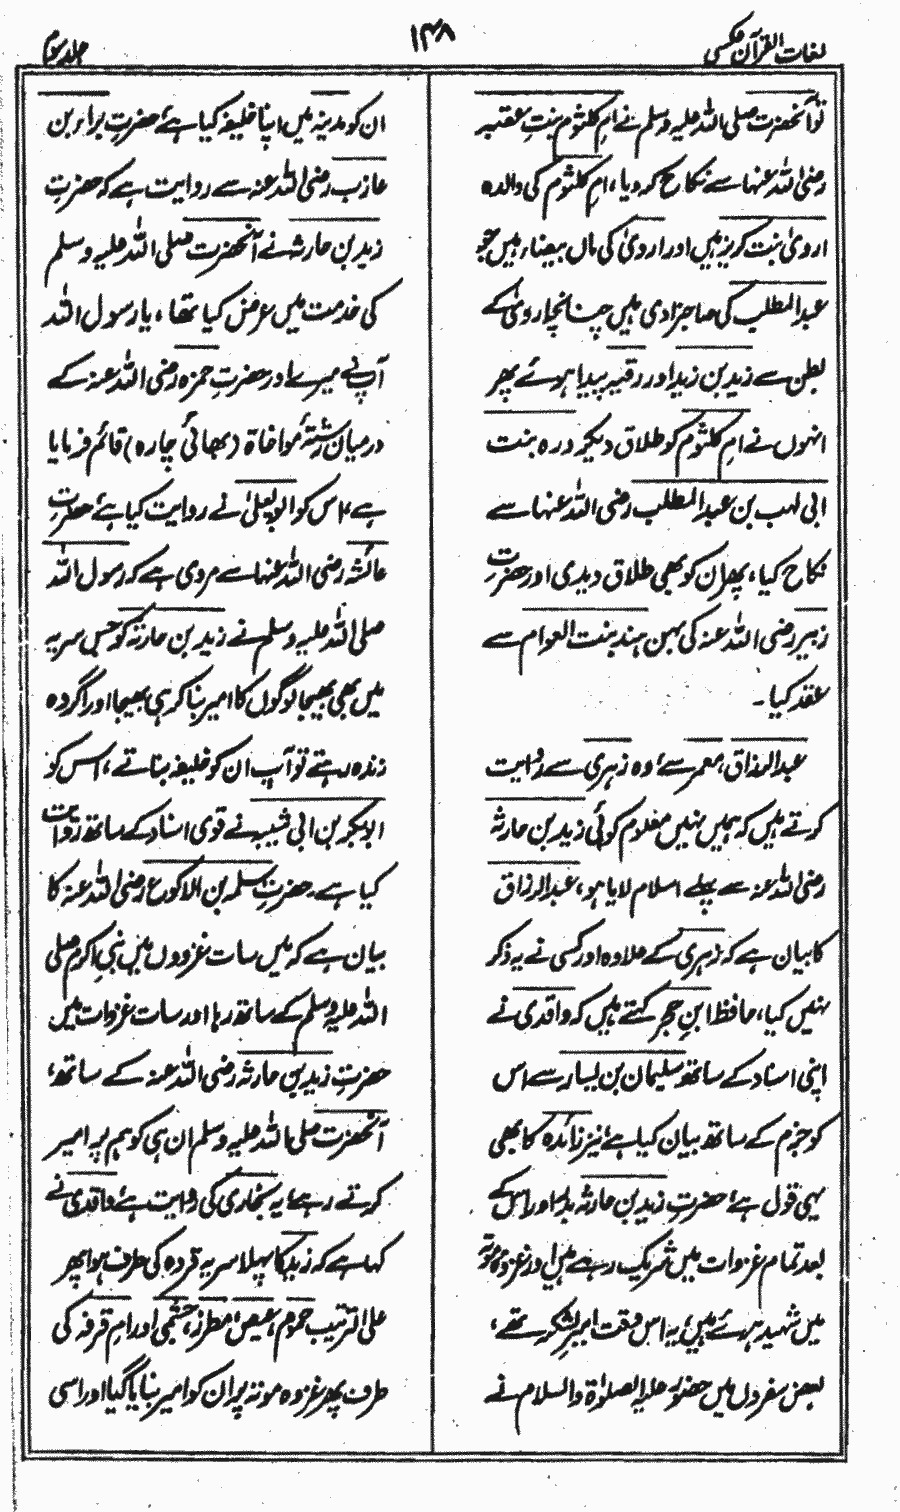 لغات القرآن عکسی
۱۴۸
جلد سوم
تو آنحضرت صلی اللہ علیہ وسلم نے ام کلثوم بنتِ عقبہ
رضی اللہ عنہا سے نکاح کر دیا، ام کلثوم کی والدہ
اروٰی بنت کریز ہیں اور اروٰی کی ماں بیضاء ہیں جو
عبدالمطلب کی صاحبزادی ہیں چنانچہ اروٰی کے
بطن سے زید بن زید اور رقیہ پیدا ہوئے پھر
انہوں نے ام کلثوم کو طلاق دیکر درہ بنت
ابی لہب بن عبد المطلب رضی اللہ عنہا سے
نکاح کیا، پھر ان کو بھی طلاق دیدی اور حضرت
زبیر رضی اللہ عنہ کی بہن ہند بنت العوام سے
عقد کیا۔
عبد الرزاق، معمر سے، وہ زہری سے روایت
کرتے ہیں کہ ہمیں نہیں معلوم کوئی زید بن حارثہ
رضی اللہ عنہ سے پہلے اسلام لایا ہو، عبد الرزاق
کا بیان ہے کہ زہری کے علاوہ اور کسی نے یہ ذکر
نہیں کیا، حافظ ابنِ حجر کہتے ہیں کہ واقدی نے
اپنی اسناد کے ساتھ سلیمان بن یسار سے اس
کو جزم کے ساتھ بیان کیا ہے، نیز زائدہ کا بھی
یہی قول ہے، حضرتِ زید بن حارثہ بدر اور اس کے
بعد تمام غزوات میں شریک رہے ہیں اور غزوہ موتہ
میں شہید ہوئے ہیں، یہ اس وقت امیرِ لشکر تھے،
بعض سفروں میں حضور علیہ الصلوٰۃ والسلام نے
ان کو مدینہ میں اپنا خلیفہ کیا ہے، حضرتِ براء بن
عازب رضی اللہ عنہ سے روایت ہے کہ حضرتِ
زید بن حارثہ نے آنحضرت صلی اللہ علیہ وسلم
کی خدمت میں عرض کیا تھا، یا رسول اللہ
آپ نے میرے اور حضرتِ حمزہ رضی اللہ عنہ کے
درمیان رشتۂ مواخاۃ (بھائی چارہ) قائم فرمایا
ہے، اس کو ابو یعلیٰ نے روایت کیا ہے، حضرتِ
عائشہ رضی اللہ عنہا سے مروی ہے کہ رسول اللہ
صلی اللہ علیہ وسلم نے زید بن حارثہ کو جس سریہ
میں بھی بھیجا لوگوں کا امیر بنا کر ہی بھیجا اور اگر وہ
زندہ رہتے تو آپ ان کو خلیفہ بناتے، اس کو
ابوبکر بن ابی شیبہ نے قوی اسناد کے ساتھ روایت
کیا ہے۔ حضرتِ سلمہ بن الاکوع رضی اللہ عنہ کا
بیان ہے کہ میں سات غزووں میں نبیِ اکرم صلی
اللہ علیہ وسلم کے ساتھ رہا اور سات غزوات میں
حضرتِ زید بن حارثہ رضی اللہ عنہ کے ساتھ،
آنحضرت صلی اللہ علیہ وسلم ان ہی کو ہم پر امیر
کرتے رہے، یہ بخاری کی روایت ہے، واقدی نے
کہا ہے کہ زید کا پہلا سریہ قردہ کی طرف ہوا پھر
علی الترتیب جموم، عیص، طرف، حسمٰی اور امِ قرفہ کی
طرف پھر غزوہ موتہ پر ان کو امیر بنایا گیا اور اسی